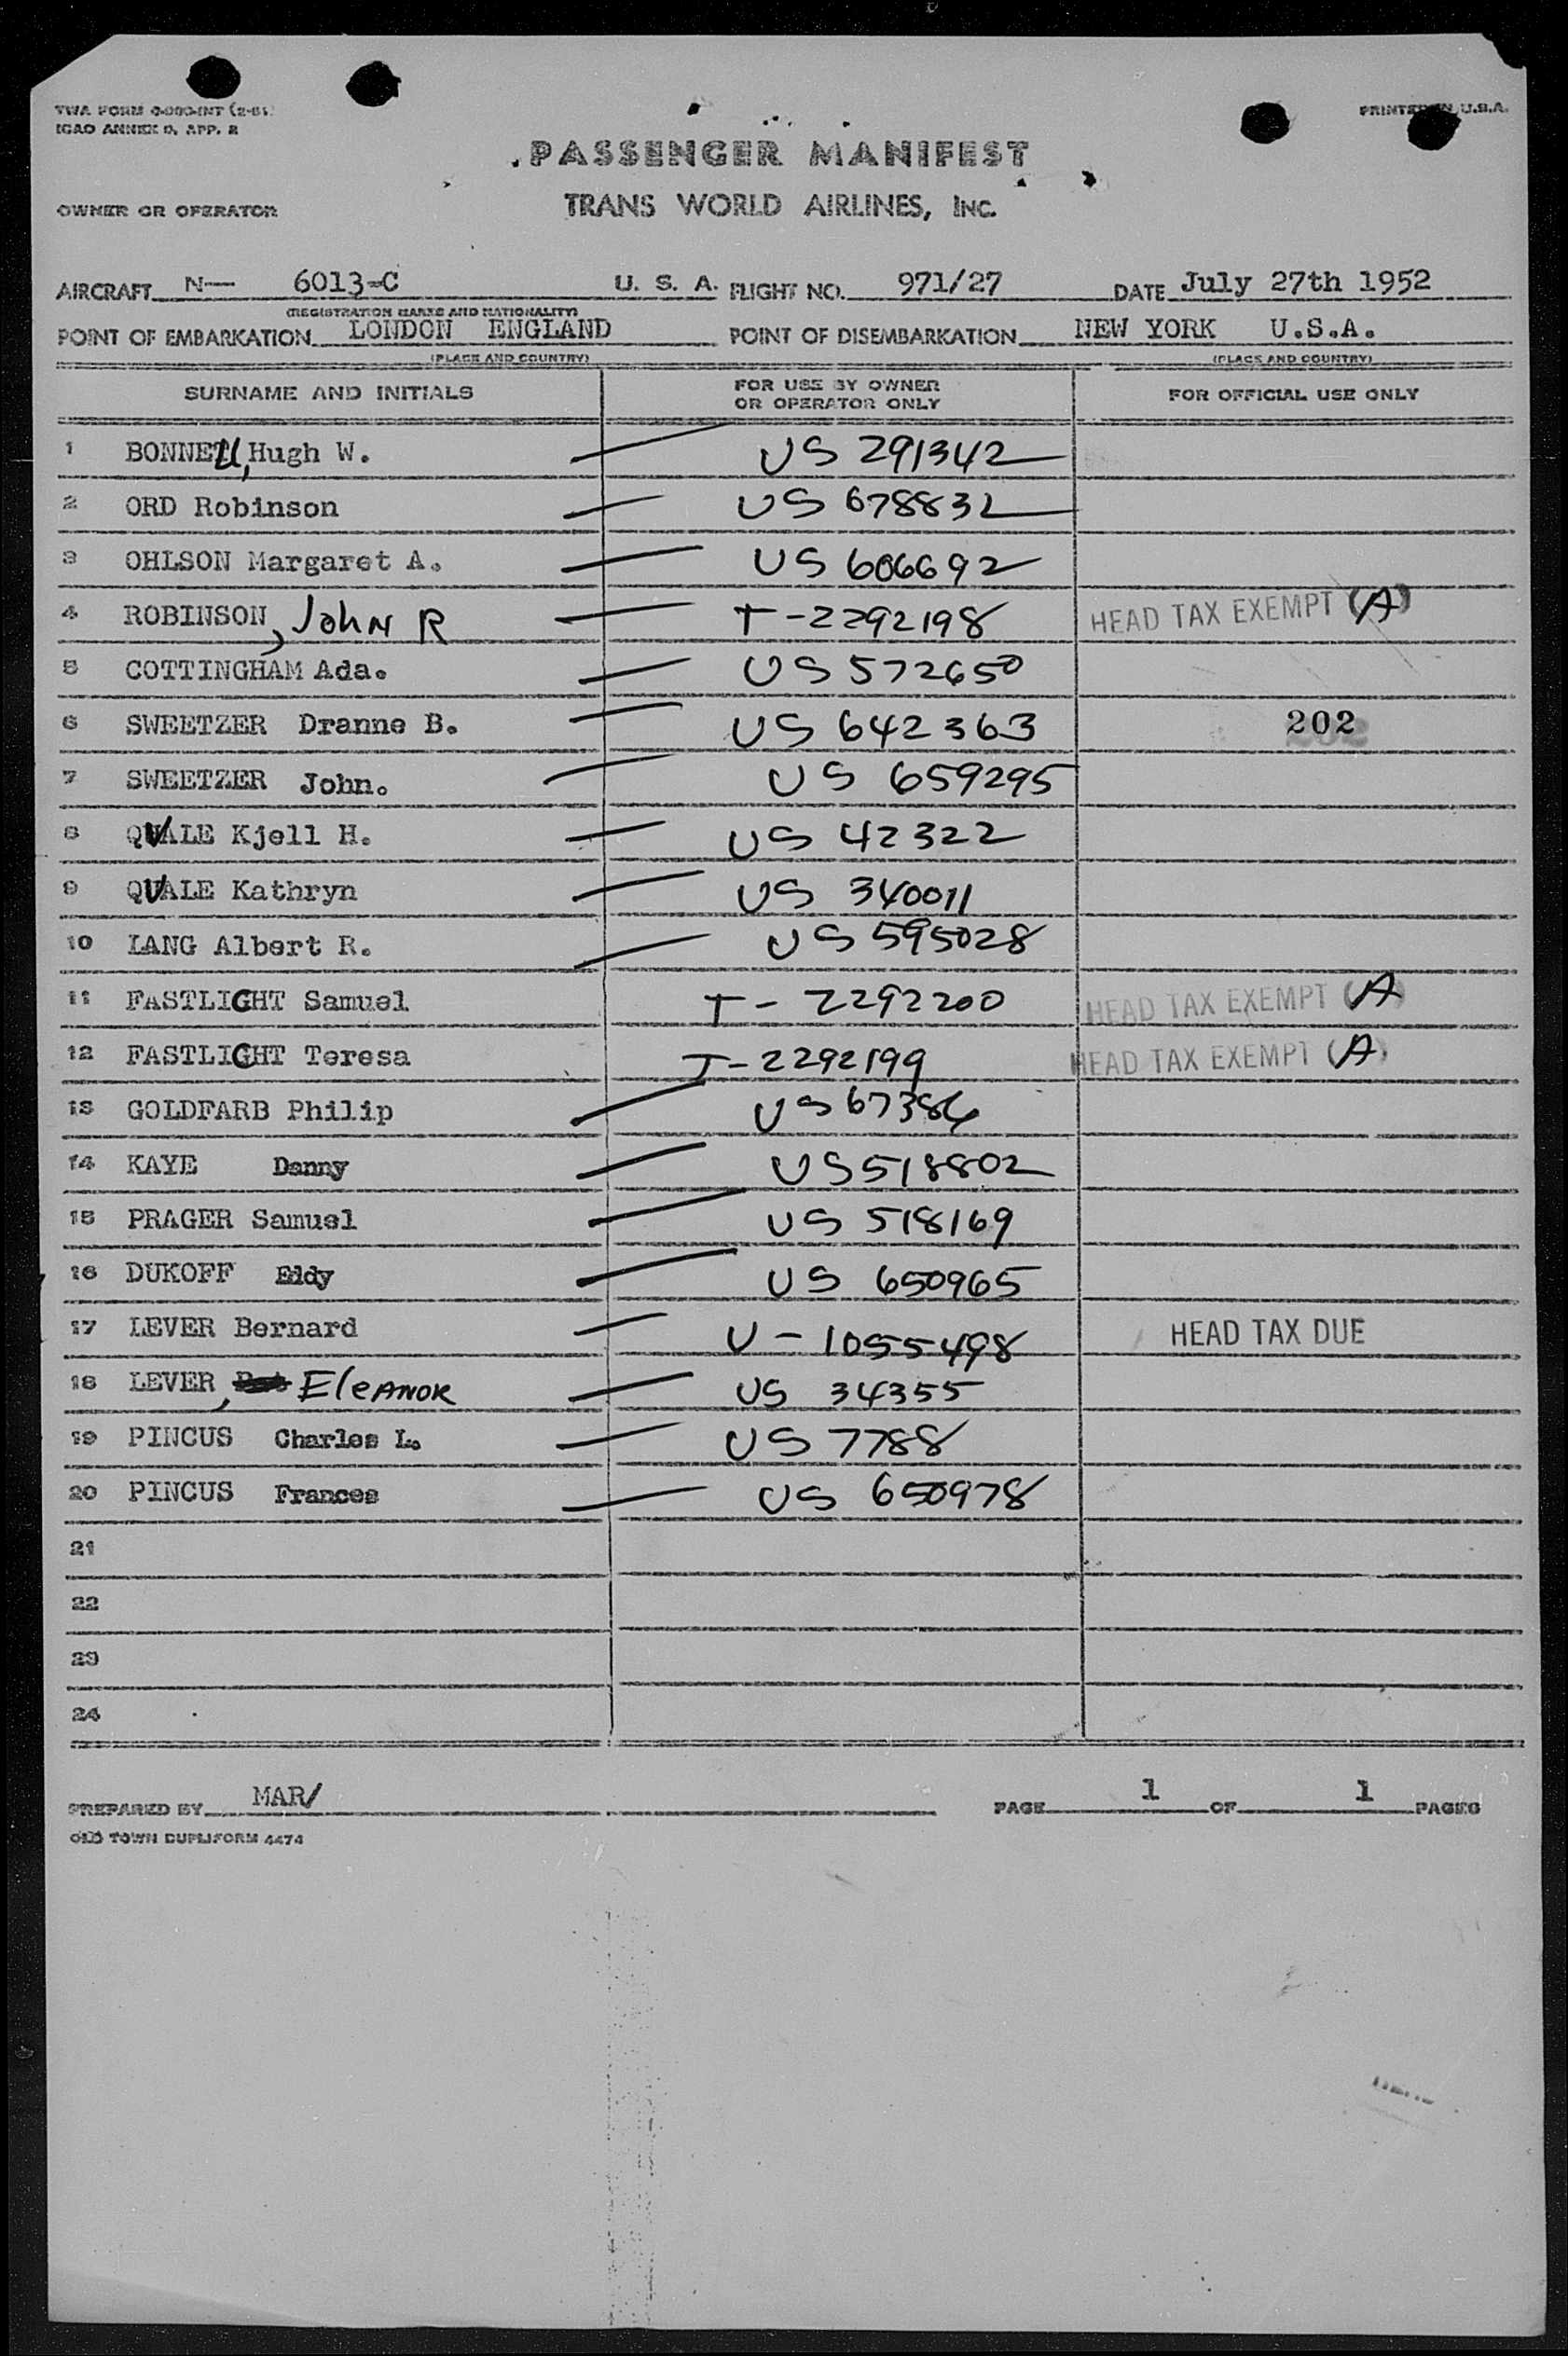 TWA FORM
ICAO ANNEX 9, APP. 2
PRINTED IN U.S.A.
PASSENGER MANIFEST
OWNER OR OPERATOR TRANS WORLD AIRLINES, INC.
AIRCRAFT N— 6013-C U. S. A. FLIGHT NO. 971/27 DATE July 27th 1952
(REGISTRATION MARKS AND NATIONALITY)
POINT OF EMBARKATION LONDON ENGLAND POINT OF DISEMBARKATION NEW YORK U.S.A.
(PLACE AND COUNTRY) (PLACE AND COUNTRY)
SURNAME AND INITIALS FOR USE BY OWNER OR OPERATOR ONLY FOR OFFICIAL USE ONLY
1 BONNELL, Hugh W. US 291342
2 ORD Robinson US 678832
3 OHLSON Margaret A. US 606692
4 ROBINSON, John R T-2292198 HEAD TAX EXEMPT (A)
5 COTTINGHAM Ada. US 572650
6 SWEETZER Dranne B. US 642363 202
7 SWEETZER John. US 659295
8 QVALE Kjell H. US 42322
9 QVALE Kathryn US 340011
10 LANG Albert R. US 595028
11 FASTLICHT Samuel T- 2292200 HEAD TAX EXEMPT (A)
12 FASTLICHT Teresa T-2292199 HEAD TAX EXEMPT (A)
13 GOLDFARB Philip US 67386
14 KAYE Danny US 518802
15 PRAGER Samuel US 518169
16 DUKOFF Eddy US 650965
17 LEVER Bernard U-1055498 HEAD TAX DUE
18 LEVER, EleANOR US 34355
19 PINCUS Charles L. US 7788
20 PINCUS Frances US 650978
21
22
23
24
PREPARED BY MAR/ PAGE 1 OF 1 PAGES
OLD TOWN DUPLIFORM 4474